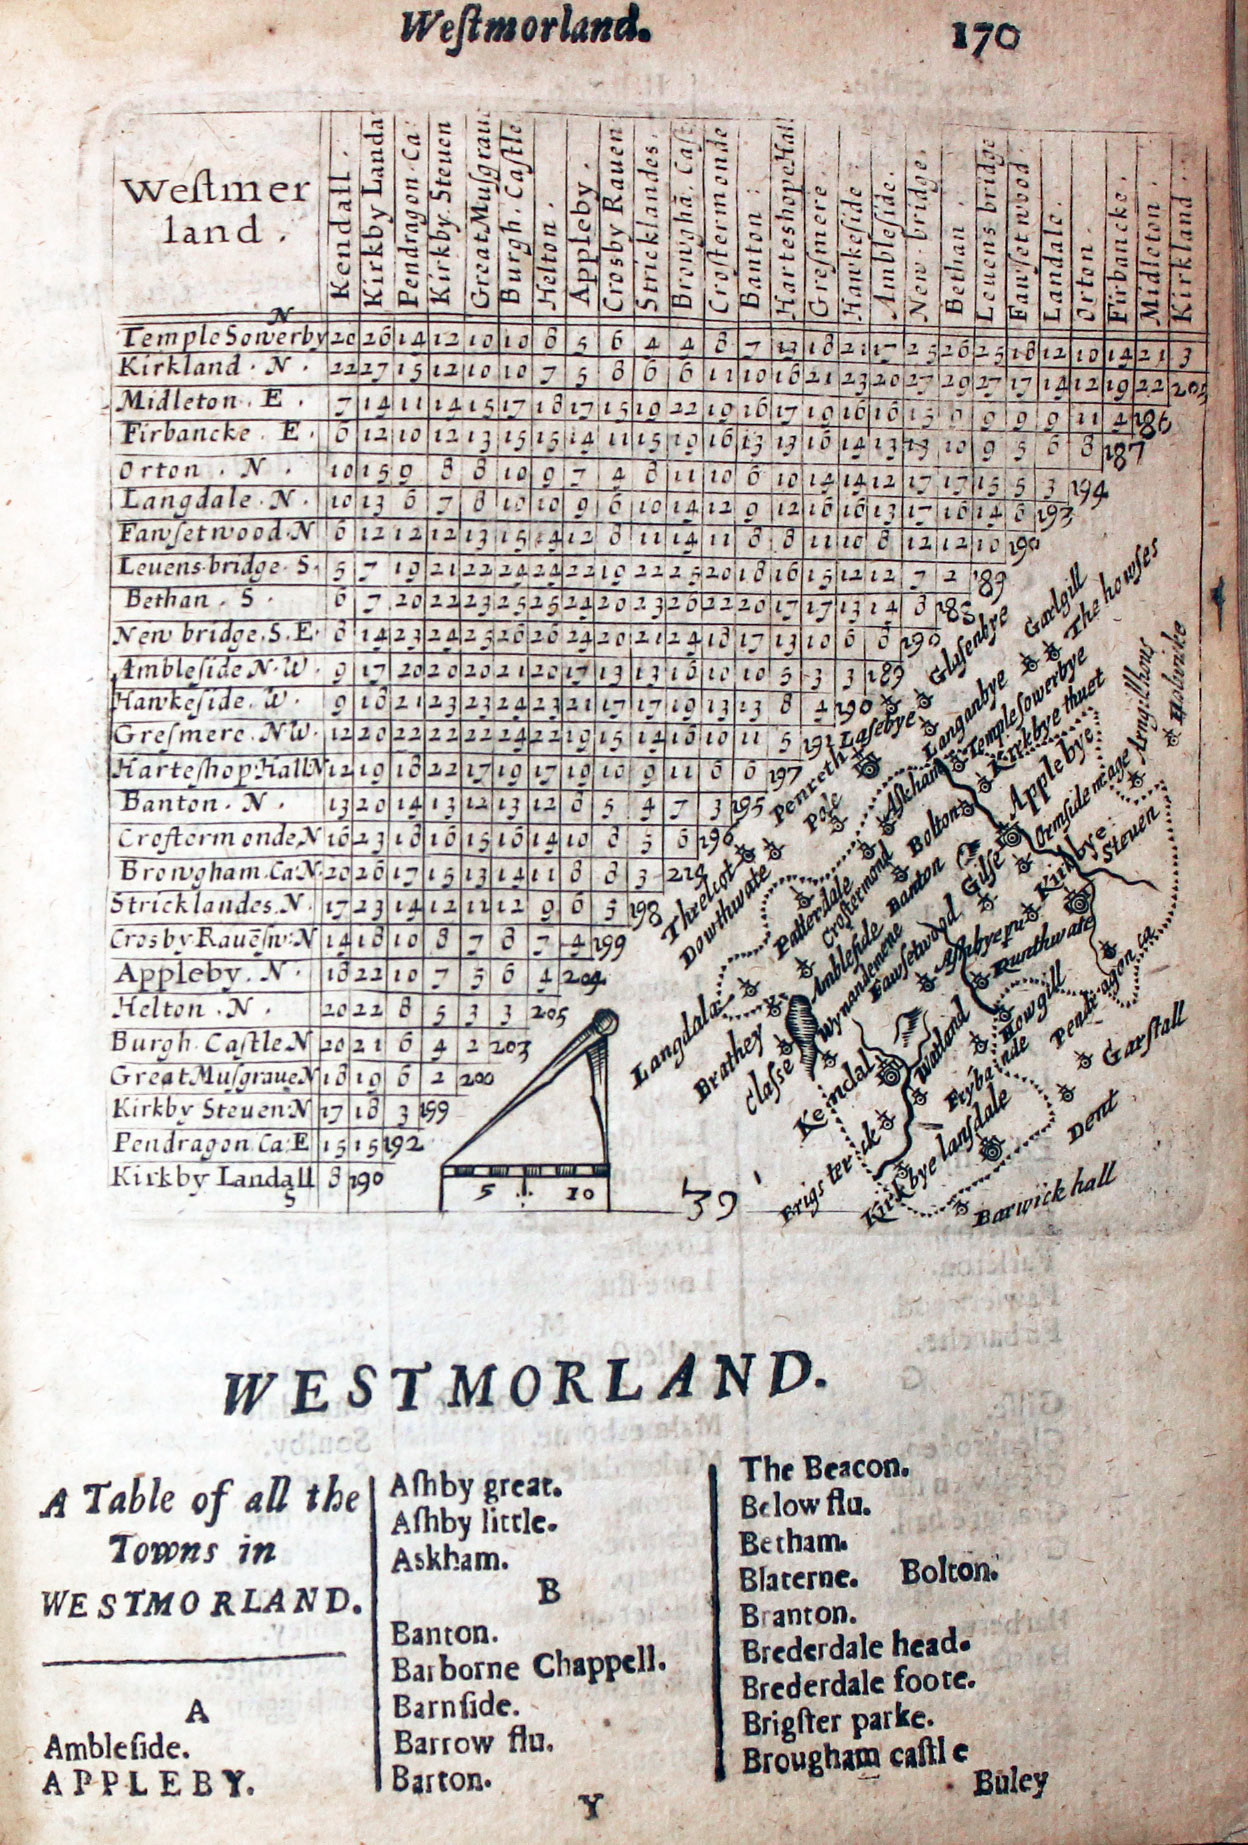 Weſtmorland.
170
Weſtmer
land.
Kendall.
Kirkby Landa
Pendragon. Ca
Kirkby. Steuen
Great Muſgraue
Burgh. Caſtle
Helton.
Appleby.
Crosby Rauen
Stricklandes.
Browghā. Caſt
Croſtermonde
Banton:
Harteshope Hall
Greſmere.
Hawkeſide.
Ambleſide.
New. bridge.
Bethan.
Leuens. bridge
Fawſetwood.
Landale.
Orton.
Firbancke.
Midleton.
Kirkland.
N
Temple Sowerby 20 26 14 12 10 10 8 5 6 4 4 8 7 13 18 21 17 25 26 25 18 12 10 14 21 3
Kirkland. N. 22 27 15 12 10 10 7 5 8 6 6 11 10 16 21 23 20 27 29 27 17 14 12 19 22 205
Midleton. E. 7 14 11 14 15 17 18 17 15 19 22 19 16 17 19 16 16 15 9 9 9 9 11 4 186
Firbancke. E. 6 12 10 12 13 15 15 14 11 15 19 16 13 13 16 14 13 13 10 9 5 6 8 187
Orton. N. 10 15 9 8 8 10 9 7 4 8 11 10 6 10 14 14 12 17 17 15 5 3 194
Langdale. N. 10 13 6 7 8 10 10 9 6 10 14 12 9 12 16 16 13 17 16 14 6 193
Fawſetwood. N 6 12 12 12 13 15 14 12 8 11 14 11 8 8 11 10 8 12 12 10 190
Leuens. bridge. S. 5 7 19 21 22 24 24 22 19 22 25 20 18 16 15 12 12 7 2 189
Bethan. S. 6 7 20 22 23 25 25 24 20 23 26 22 20 17 17 13 14 8 183
New bridge. S. E. 8 14 23 24 25 26 26 24 20 21 24 18 17 13 10 6 8 190
Ambleſide N. W. 9 17 20 20 20 21 20 17 13 13 16 10 10 5 3 3 189
Hawkeſide. W. 9 18 21 23 23 24 23 21 17 17 19 13 13 8 4 190
Greſmere. N W. 12 20 22 22 22 24 22 19 15 14 16 10 11 5 191
Harteſhop. Hall N 12 19 18 22 17 19 17 19 10 9 11 6 6 197
Banton. N. 13 20 14 13 12 13 12 8 5 4 7 3 195
Croſtermonde, N 16 23 18 16 15 16 14 10 8 5 6 196
Browgham. Ca N. 20 26 17 15 13 14 11 8 8 3 219
Stricklandes. N. 17 23 14 12 11 12 9 6 5 198
Crosby Rauēſw: N 14 18 10 8 7 8 7 4 199
Appleby. N. 18 22 10 7 5 6 4 204
Helton. N. 20 22 8 5 3 3 205
Burgh. Caſtle. N 20 21 6 4 2 203
Great Muſgraue N 18 19 6 2 200
Kirkby Steuen N 17 18 3 199
Pendragon Ca: E 15 15 192
Kirkby Landall
S 8 190
5 10
39
Garlgill
The howſes
Gluſenbye
Laſebye
Langanbye
Temple ſowerbye
Kirkbye thuet
Armgilhous
Holwike
Penreth
Pole
Askham
Applebye
Ormſide
Bolton
Kirkbye:
Steuen
Threlcot
Dowthwate
Patterdale
Croſtermond
Banton
Gilſe
Ambleſide
Wynandemere
Fawſetwood
Aſhbye
Runthwate
Langdala
Brathey
Claſſe
Kendal
Watland
Howgill
Pendragon ca
Garſtall
Frybainde
Kirkbye lanſdale
Dent
Brigsterick
Barwick hall
WESTMORLAND.
A Table of all the
Towns in
WESTMORLAND.
A
Ambleſide.
APPLEBY.
Aſhby great.
Aſhby little.
Askham.
B
Banton.
Barborne Chappell.
Barnſide.
Barrow flu.
Barton.
The Beacon.
Below flu.
Betham.
Blaterne. Bolton.
Branton.
Brederdale head.
Brederdale foote.
Brigſter parke.
Brougham caſtle
Buley
Y